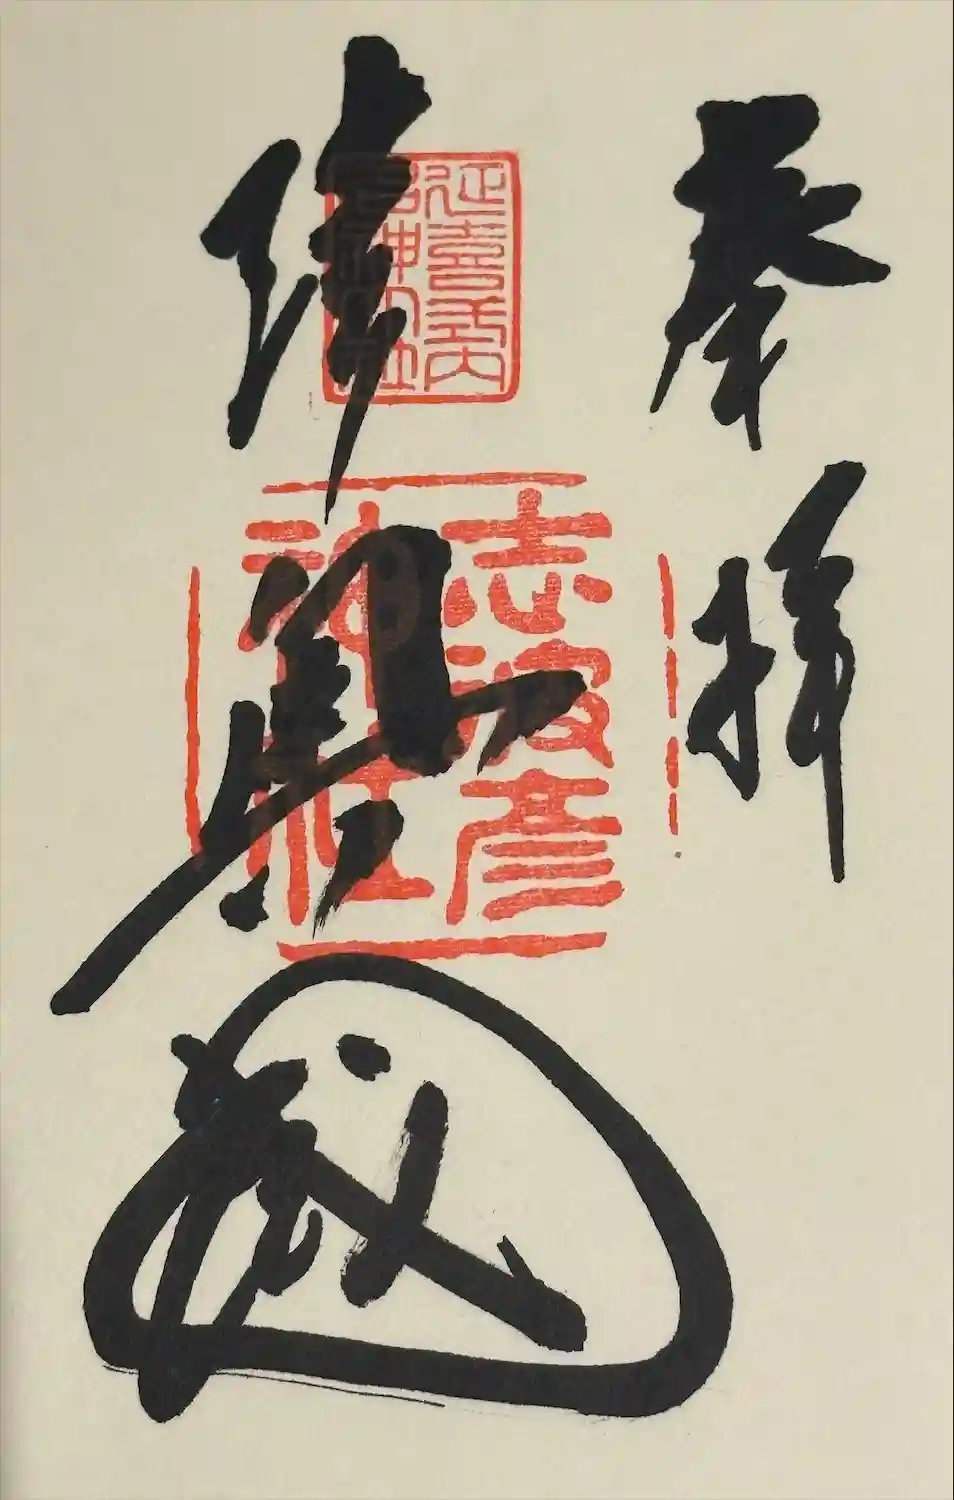 奉拝
陸奥國
延喜式内
名神大社
志波彦
神社